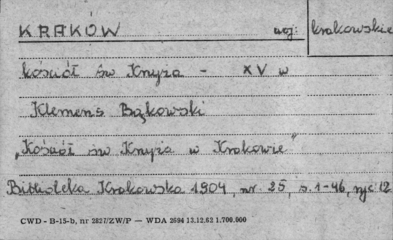 KRAKÓW woj: krakowskie
kościół św Krzyża - XV w
Klemens Bąkowski
„Kościół św Krzyża w Krakowie"
Biblioteka Krakowska 1904, nr. 25, s. 1-46, ryc 12
CWD - B-15-b, nr 2827/ZW/P — WDA 2694 13.12.63 1.700.000